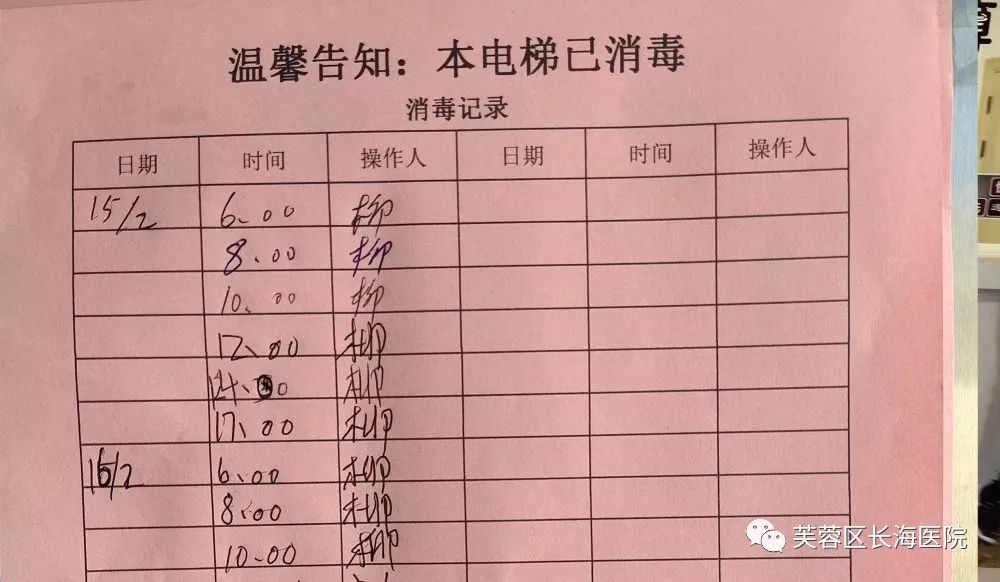 温馨告知：本电梯已消毒
消毒记录
日期 时间 操作人 日期 时间 操作人
15/2 6、00 柳
8、00 柳
10、00 柳
12、00 柳
14、00 柳
17、00 柳
16/2 6、00 柳
8、00 柳
10、00 柳
芙蓉区长海医院